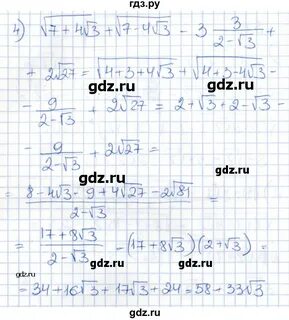 гдз.ру
4) √7+4√3 + √7-4√3 - 3 3/(2-√3) +
+ 2√27 = √4+3+4√3 + √4+3-4√3 -
- 9/(2-√3) + 2√27 = 2+√3+2-√3 -
- 9/(2-√3) + 2√27 =
= (8-4√3-9+4√27-2√81)/(2-√3) =
= (17+8√3)/(2-√3) - (17+8√3)(2+√3) =
= 34+16√3+17√3+24=58+33√3
гдз.рф